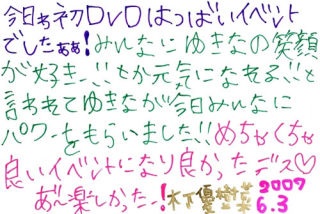 今日ゎ初DVDはつばいイベント
でしたぁぁ!みんなにゆきなの笑顔
が好き!!とか元気になれる!!と
言われてゆきなが今日みんなに
パワーをもらいました!!めちゃくちゃ
良いイベントになり良かったデス♡
あ〜楽しかったー!木下優樹菜 2007
6.3